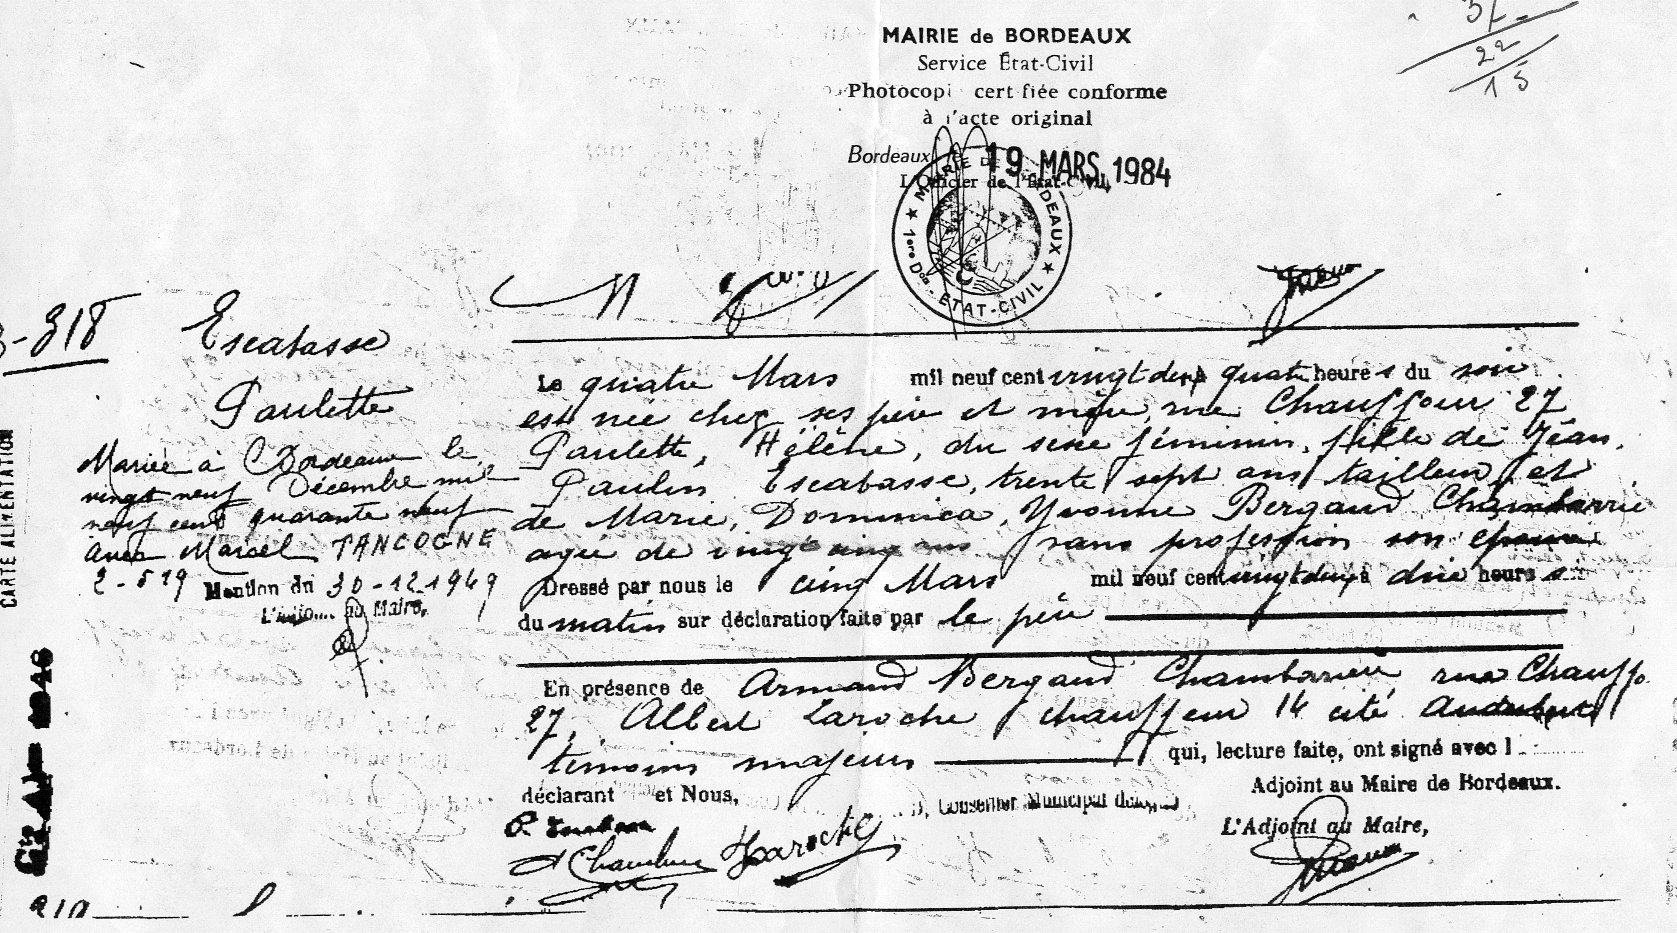 MAIRIE de BORDEAUX
Service État-Civil
Photocopi cert fiée conforme
à l'acte original
Bordeaux, le 19 MARS 1984
L'Officier de l'État-Civil,
★ MAIRIE DE BORDEAUX ★ 1ère Don - ÉTAT-CIVIL
37
22
15
318
Escabasse
Paulette
Mariée à Bordeaux le
vingt neuf Décembre mil
neuf cent quarante neuf
avec Marcel TANCOGNE
2-519 Mention du 30-12-1949
L'Adjoint au Maire,
CARTE ALIMENTATION
1946
Le quatre Mars mil neuf cent vingt deux à quatre heures du soir
est née chez ses père et mère, rue Chauffour 27
Paulette, Hélène, du sexe féminin, fille de Jean
Paulin Escabasse, trente sept ans tailleur, et
de Marie, Dominica, Yvonne Bergaud Chambarrière
agée de vingt cinq ans sans profession son épouse
Dressé par nous le cinq Mars mil neuf cent vingt deux à dix heures
du matin sur déclaration faite par le père
En présence de Armand Bergaud Chambarrière rue Chauffo
27, Albert Laroche chauffeur 14 cité
témoins majeurs qui, lecture faite, ont signé avec l
déclarant et Nous, Conseiller Municipal délégué Adjoint au Maire de Bordeaux.
L'Adjoint au Maire,
Laroche